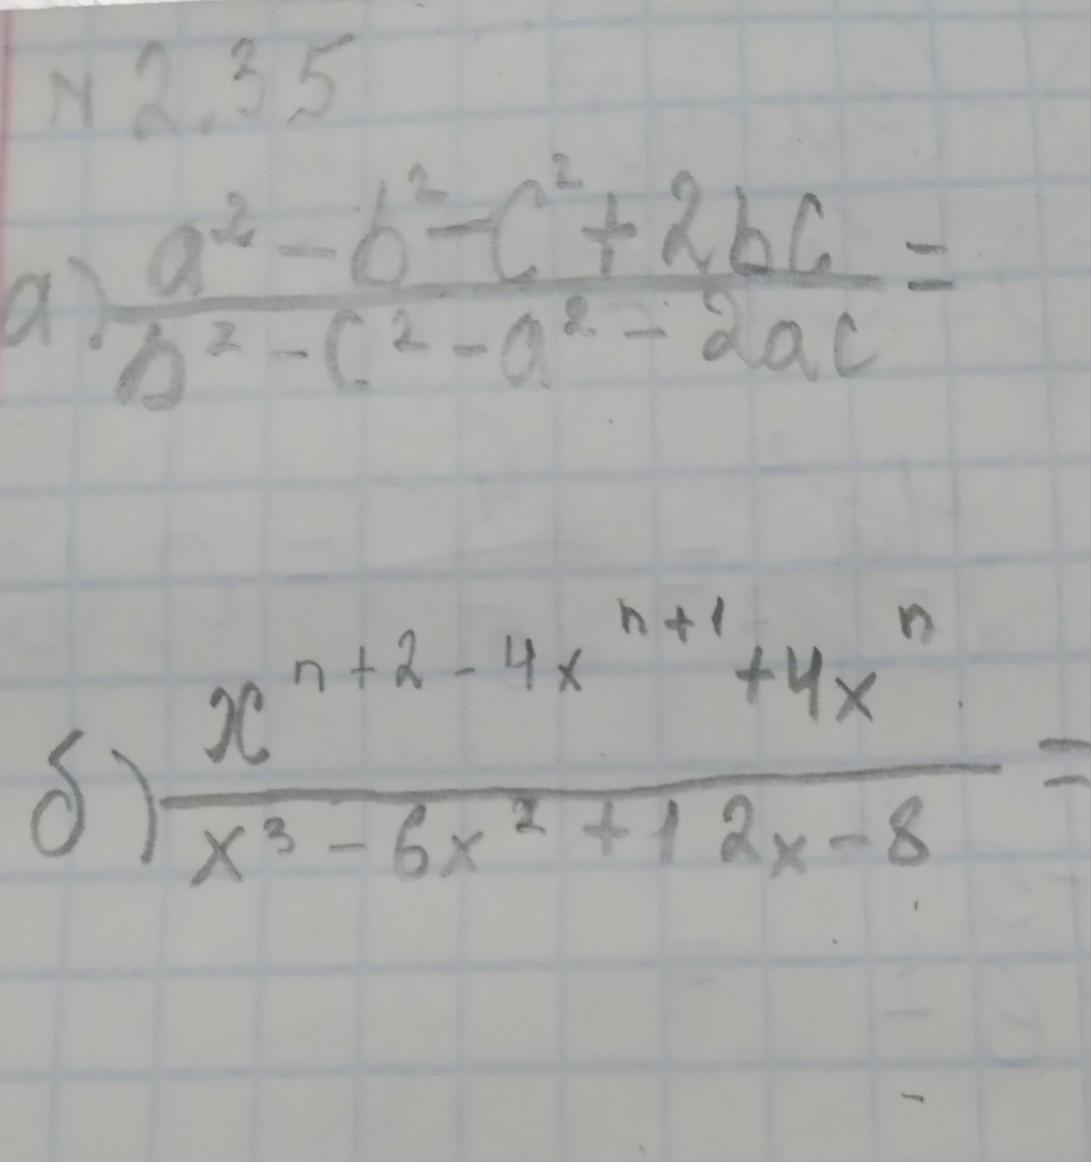 N 2.35
а) a² - b² - c² + 2bc =
b² - c² - a² - 2ac
б) x^(n+2) - 4x^(n+1) + 4x^n =
x³ - 6x² + 12x - 8